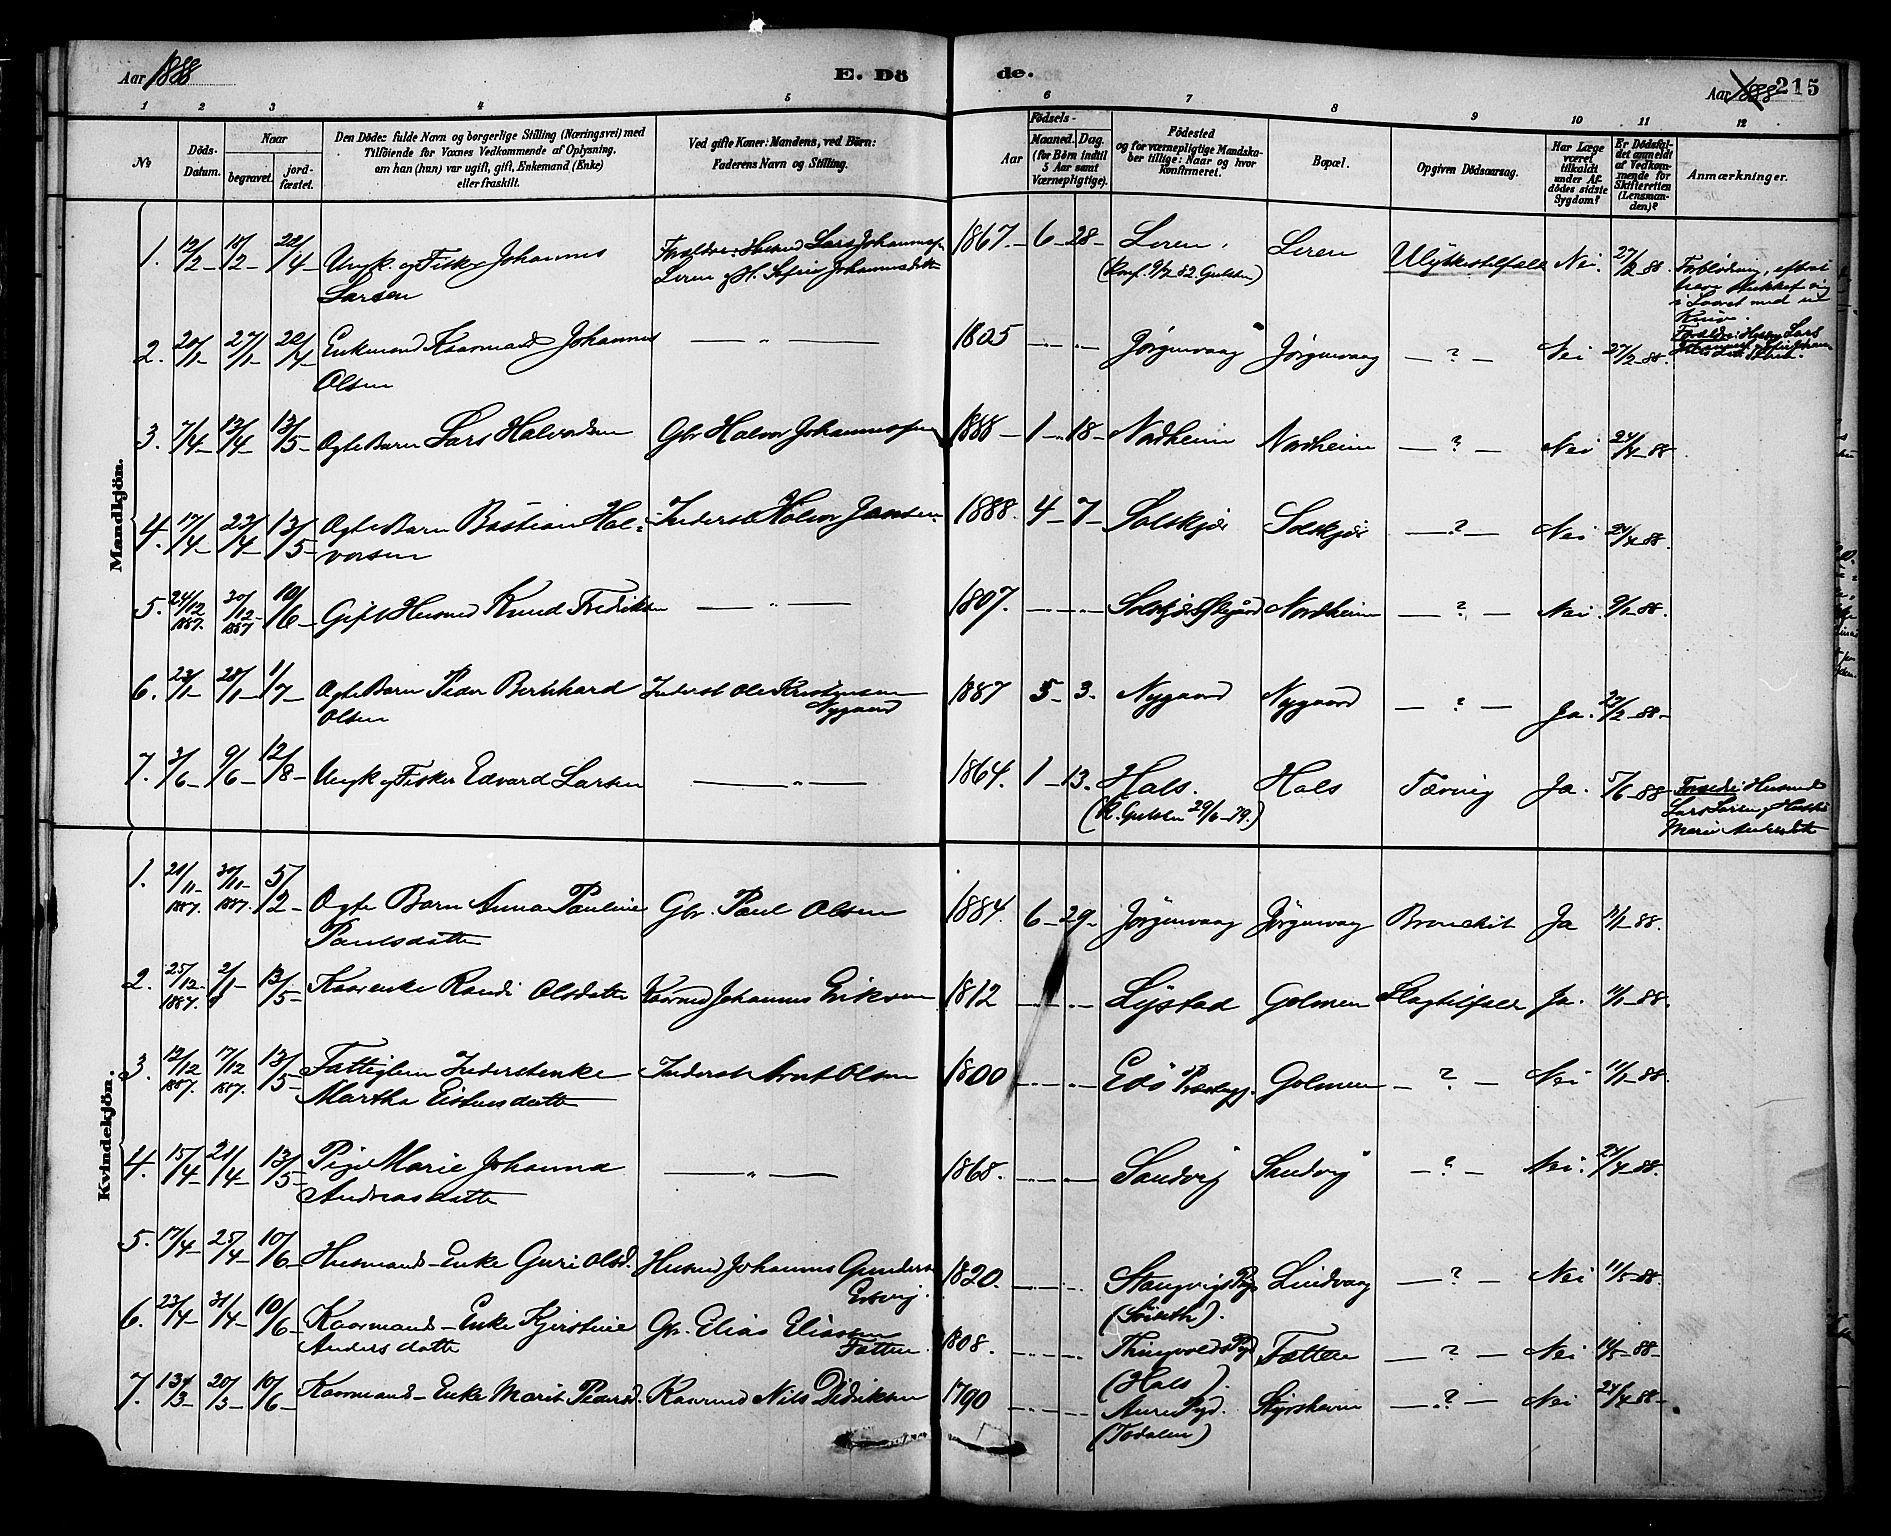 Aar 1888
E. Dö
de.
Aar 1888 215
1 2 3 4 5 6 7 8 9 10 11 12
No
Döds-Datum.
Naar
begravet.
jordfæstet.
Den Dödes fulde Navn og borgerlige Stilling (Næringsvei) med
Tilföiende for Voxnes Vedkommende af Oplysning,
om han (hun) var ugift, gift, Enkemand (Enke)
eller fraskilt.
Ved gifte Koner: Mandens, ved Börn:
Faderens Navn og Stilling.
Födsels-
Aar
Maaned. Dag.
(for Börn indtil
5 Aar samt
Værnepligtige).
Födested
og for værnepligtige Mandskaber tillige: Naar og hvor
konfirmeret.
Bopæl.
Opgiven Dödsaarsag.
Har Læge
været
tilkaldt
under Afdödes sidste
Sygdom?
Er Dödsfaldet anmeldt
af Vedkommende for
Skifteretten
(Lensmanden)?
Anmærkninger.
Mandkjön.
1. 12/2 18/2 22/4 Ungk. og Fisker Johannes Larsen Forældre: Husmd Lars Johannessen Leren 1867 6 28 Leren Leren Ulykkestilfælde Nei. 27/2 88 Forblødning, efterat have stukket sig i Laaret med en Kniv.
2. 20/1 27/1 22/4 Enkemand Kaarmand Johannes Olsen — " — 1805 Jørgenvaag Jørgenvaag — ? — Nei 27/2 88.
3. 7/4 13/4 13/5 Ægte Barn Lars Halvordsen Gbr Halvor Johannessen 1888 1 18 Nordheim Nordheim — ? — Nei 24/4 88
4. 17/4 23/4 13/5 Ægte Barn Bastian Halvorsen Inderst Halvor Jansen 1888. 4 7 Solskjør Solskjør — ? — Nei 24/4 88.
5. 24/12 1887. 30/12 1887 10/6 Gift Husmd Knud Fredriksen — " — 1807. Nordheim — ? — Nei 9/1 88.
6. 23/1 28/1 1/7 Ægte Barn Peder Bernhard Olsen Inderst Ole Kristensen Nygaard 1887 5 3. Nygaard Nygaard — ? — Ja. 27/2 88
7. 3/6 9/6 12/8 Ungk og Fisker Edvard Larsen — " — 1864. 1 13. Hals. (K. Gulsten 29/6 79.) Hals Tæring Ja. 5/6 88 Forældre: Husmd Lars Larsen og Hustru Marie
Kvindekjön.
1. 21/11 1887. 30/11 1887. 5/2 Ægte Barn Anna Pauline Paulsdatter Gbr. Paul Olsen 1884. 6 29. Jørgenvaag Jørgenvaag Bronchit Ja 11/1 88.
2. 25/12 1887. 2/1 13/5 Kaarenke Randi Olsdatter Kaarmd Johannes Eriksen 1812 Lystad Golmen Slagtilfælde Ja. 11/1 88.
3. 12/12 1887. 17/12 1887. 13/5 Fattiglem Inderstenke Martha Eistensdatter Inderst Arnt Olsen 1800 Edö Præstegj. Golmen — ? — Nei 11/1 88.
4. 15/4 21/4 13/5 Pige Marie Johanna Andreasdatter — " — 1868. Sandvig Sandvig — ? — Nei. 24/4 88.
5. 17/4 25/4 10/6 Husmands-Enke Guri Olsd. Husmd Johannes Gunders 1820. Stangvigs Pgj. Lindvaag — ? — Nei 11/5 88.
6. 23/4 31/4 10/6 Kaarmands-Enke Kjerstine Andersdatter Gbr. Elias Eliassen Fætten. 1808. Thingvolds Pgd (Hals). Fætten — ? — Nei 11/5 88
7. 13/3 20/3 10/6 Kaarmands-Enke Marit Pedersd. Kaarmd Nils Didriksen 1790 Aure Pgd. (Todalen) Styrshavn — ? — Nei 24/4 88